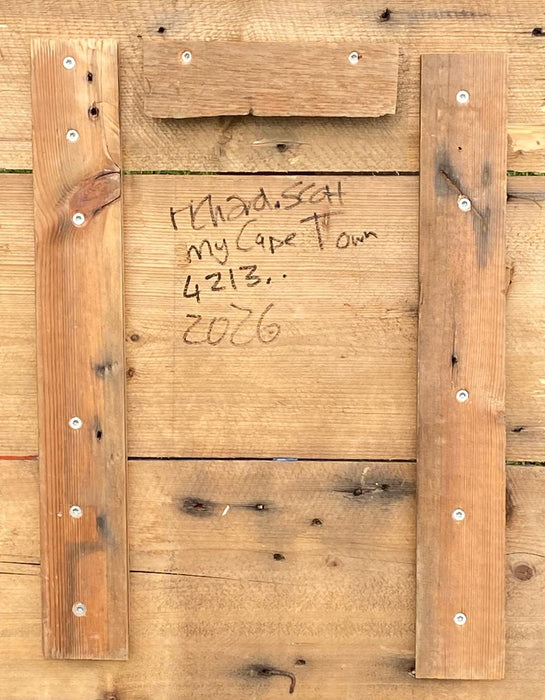 richard.Scott
my Cape Town
4213..
2026